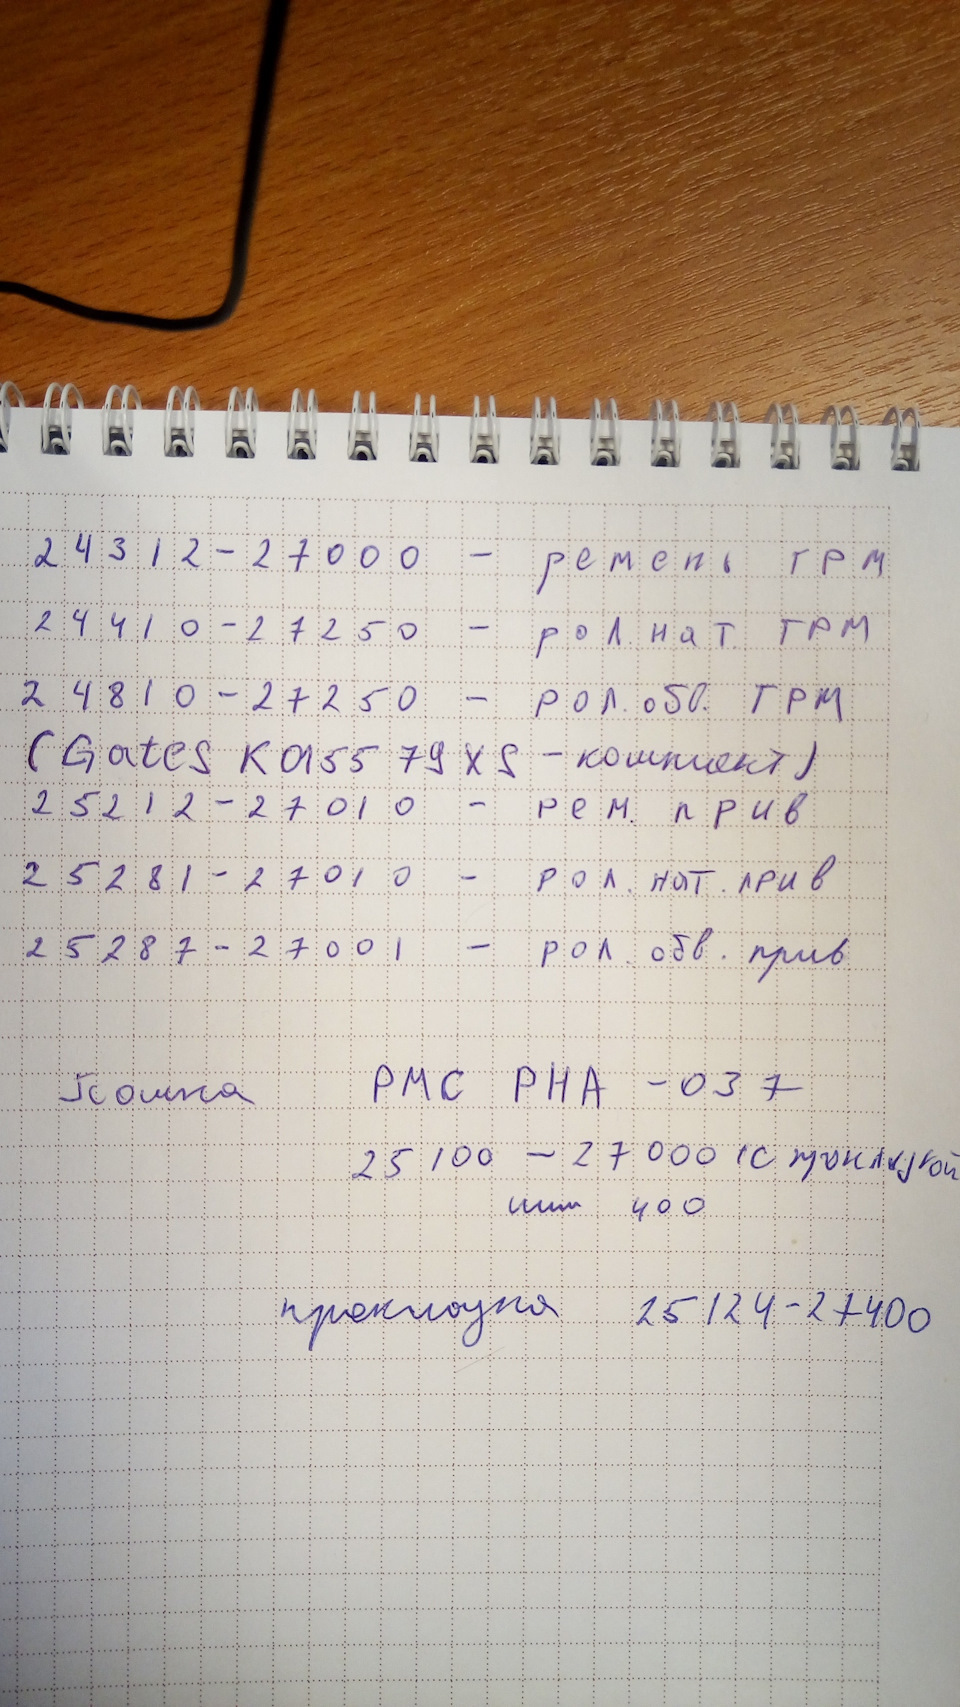 24312-27000 - ремень ГРМ
24410-27250 - рол. нат. ГРМ
24810-27250 - рол. обв. ГРМ
(Gates K015579XS - комплект)
25212-27010 - рем. прив
25281-27010 - рол. нат. прив
25287-27001 - рол. обв. прив
Помпа PMC PHA-037
25100-27000 (с прокладкой
или 400
прокладка 25124-27400